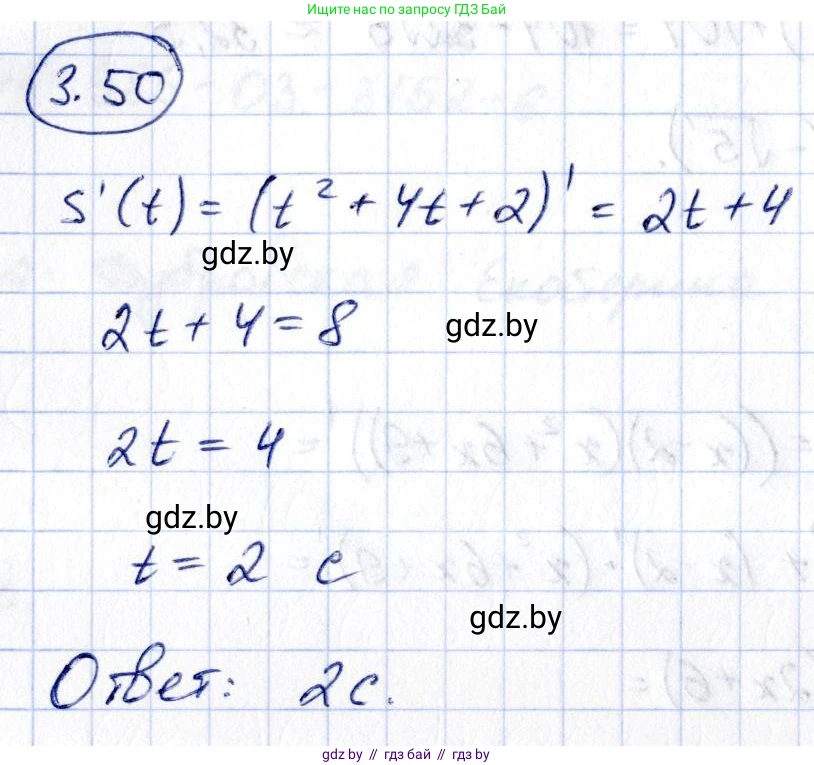 Ищите нас по запросу ГДЗ Бай
3.50
S'(t) = (t² + 4t + 2)' = 2t + 4
gdz.by
2t + 4 = 8
gdz.by
2t = 4
gdz.by
t = 2 с
gdz.by
Ответ: 2с.
gdz.by // гдз бай // gdz by